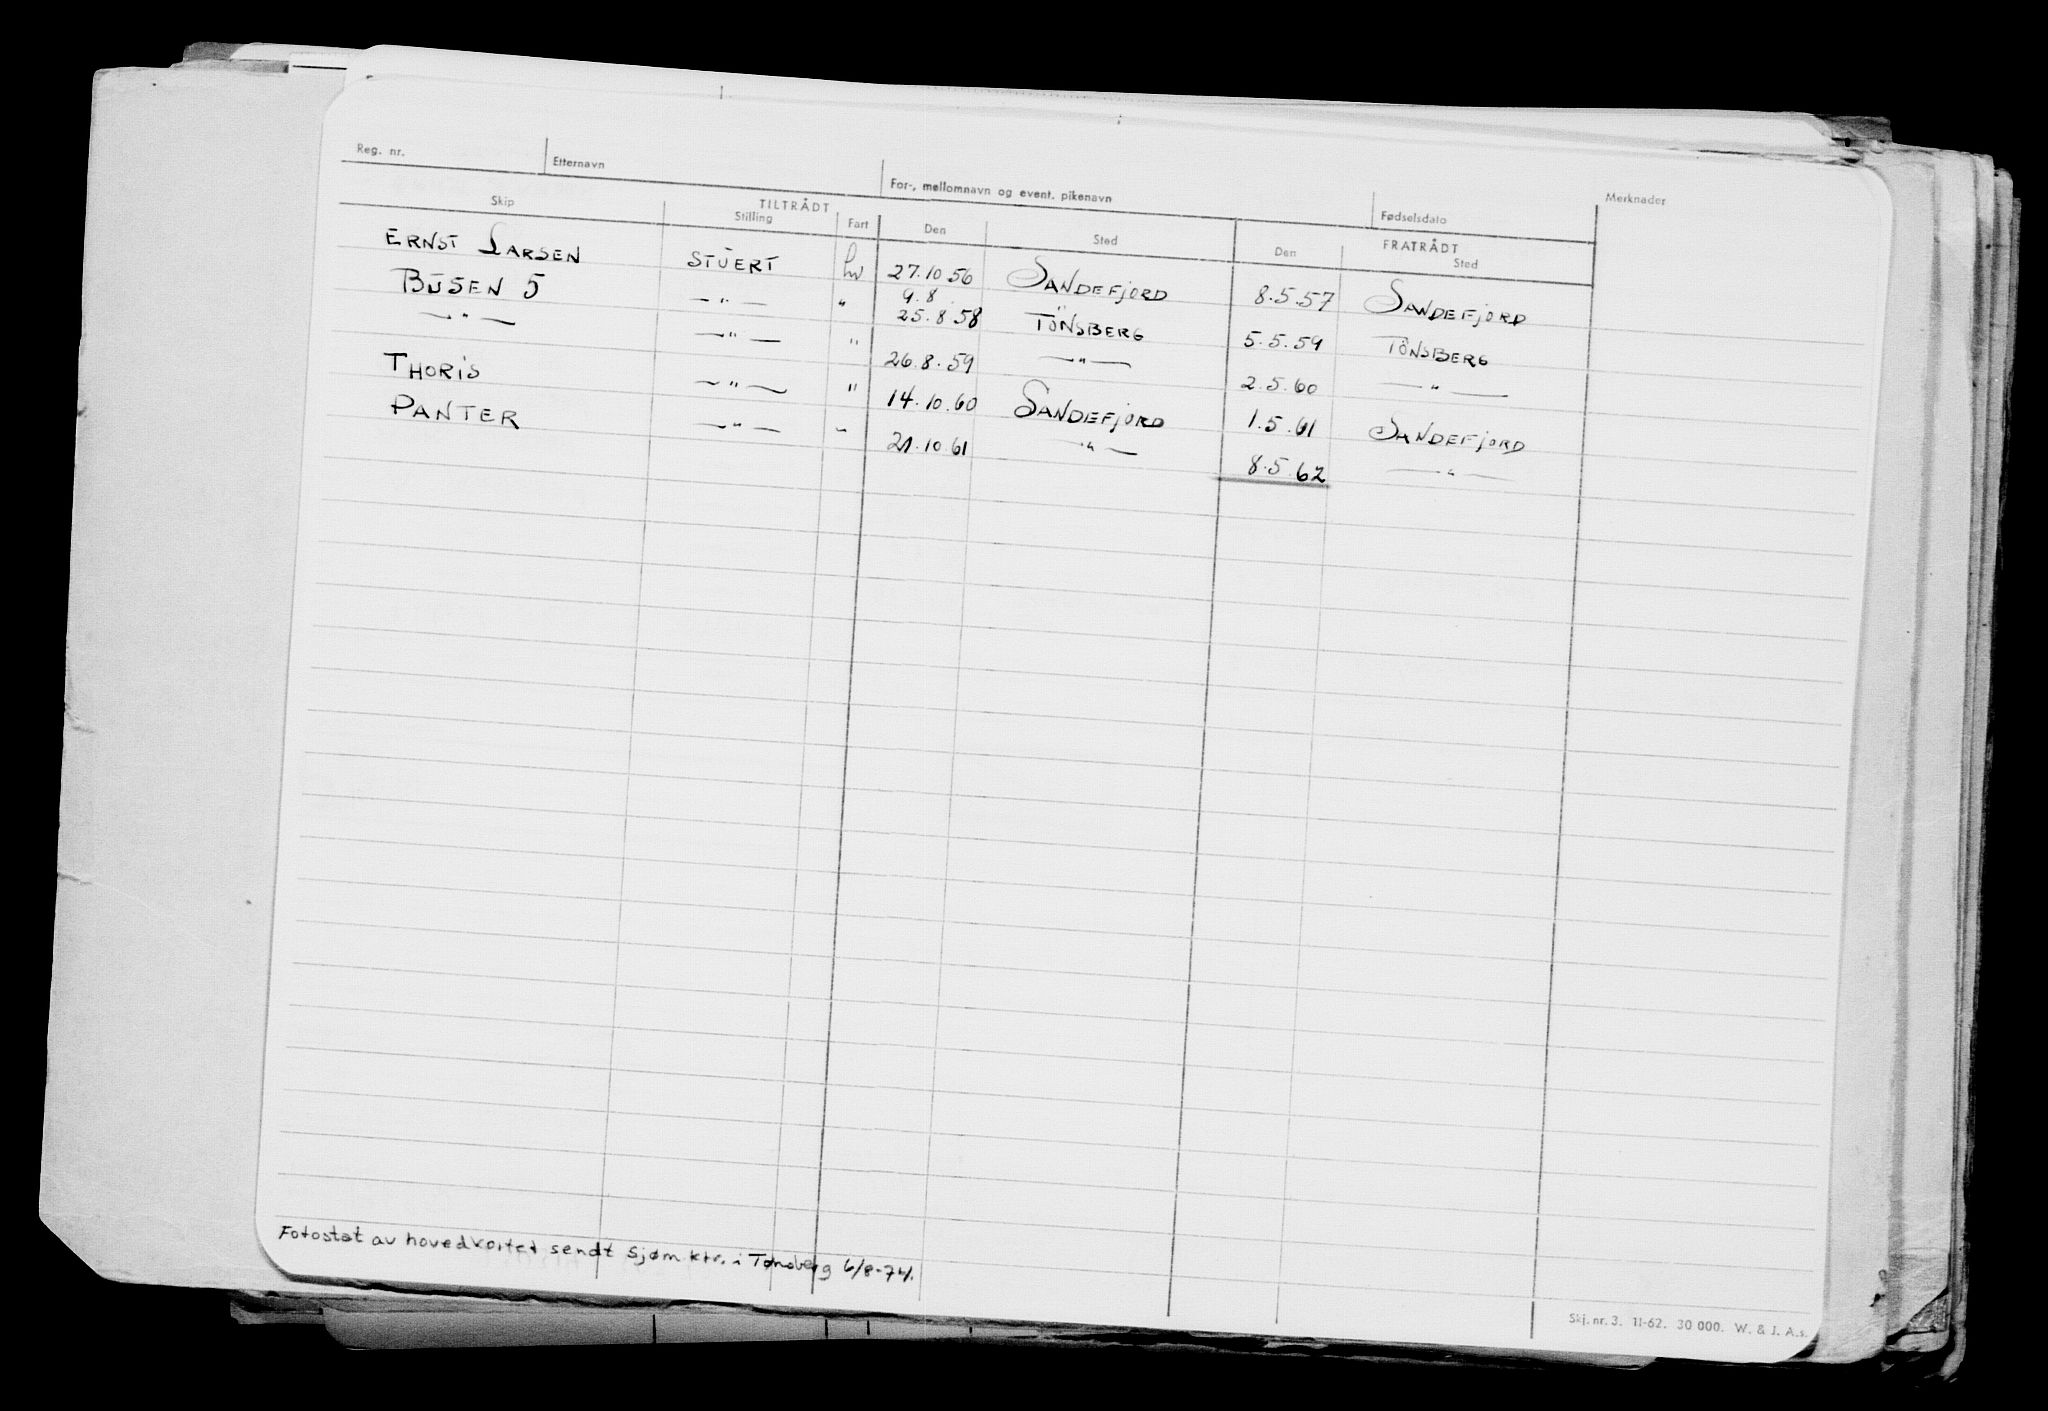 Reg. nr. Etternavn For-, mellomnavn og event. pikenavn Fødselsdato Merknader
TILTRÅDT FRATRÅDT
Skip Stilling Fart Den Sted Den Sted
ERNST LARSEN STUERT hv 27.10 56 SANDEFJORD 8.5.57 SANDEFJORD
9.8
BUSEN 5 —"— " 25.8 58 TÖNSBERG 5.5.59 TÖNSBERG
—"— —"— " 26.8.59 —"— 2.5.60 —"—
THORIS —"— " 14.10.60 SANDEFJORD 1.5.61 SANDEFJORD
PANTER —"— " 21.10.61 —"— 8.5.62 —"—
Fotostat av hovedkortet sendt sjøm.ktr. i Tønsberg 6/8-74.
Skj. nr. 3. 11-62. 30 000. W. & J. A.s.